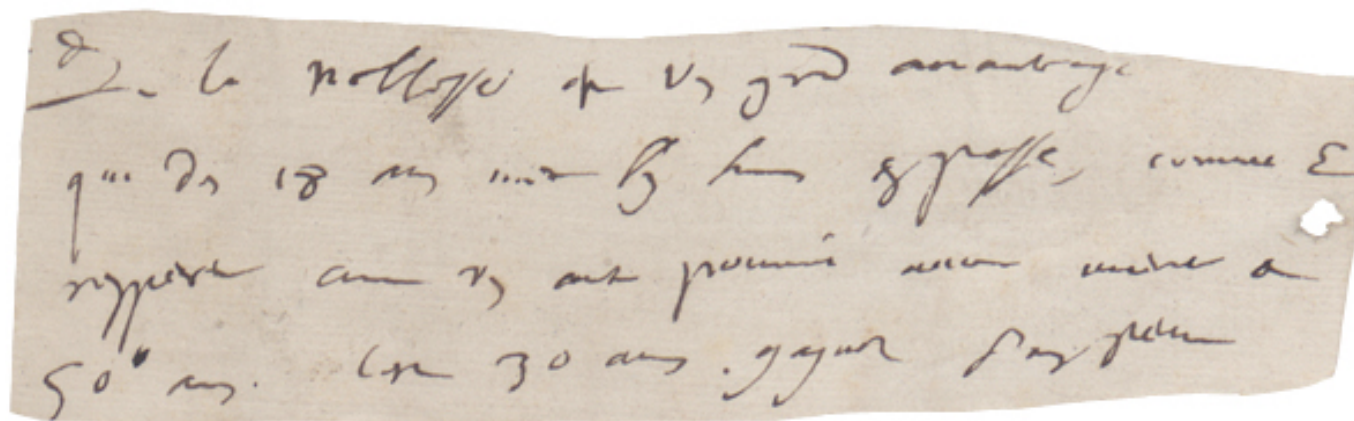 la noblesse est un grand avantage
qui des 18 ans met un homme en passe, connu &
respecté comme un autre pourroit avoir merité a
50 ans. Cest 30 ans gagnez sans peine